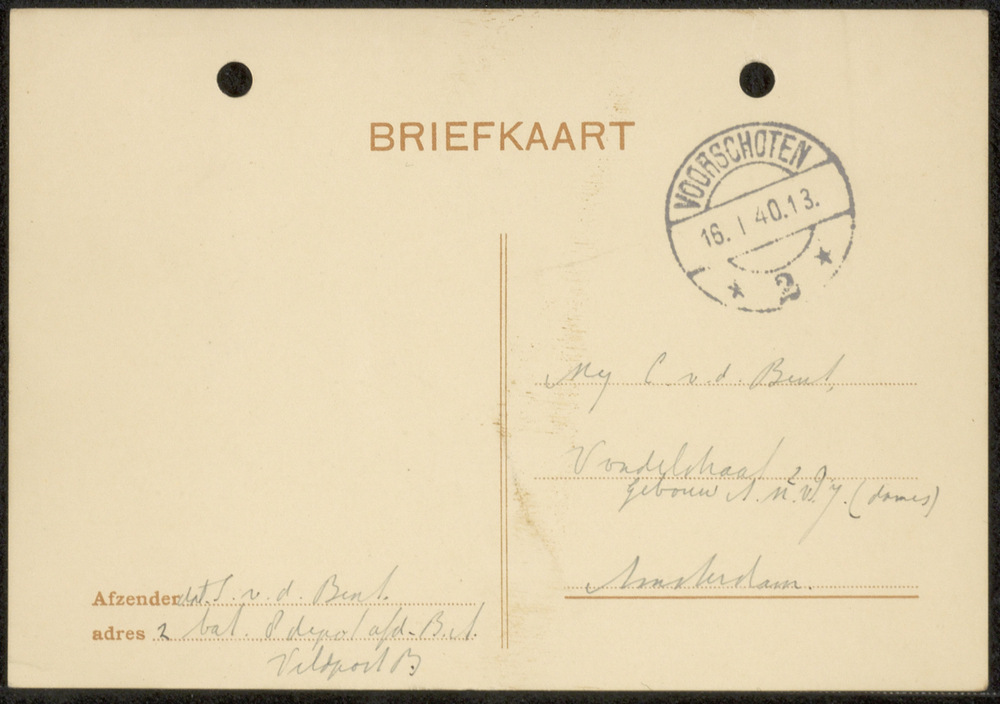 BRIEFKAART
VOORSCHOTEN
16. I 40.13.
2
Mej C. v. d. Bent,
Vondelstraat 20
gebouw (dames)
Amsterdam.
Afzender v. d. Bent.
adres 2 bat. 8 depot afd.
Veldpost B